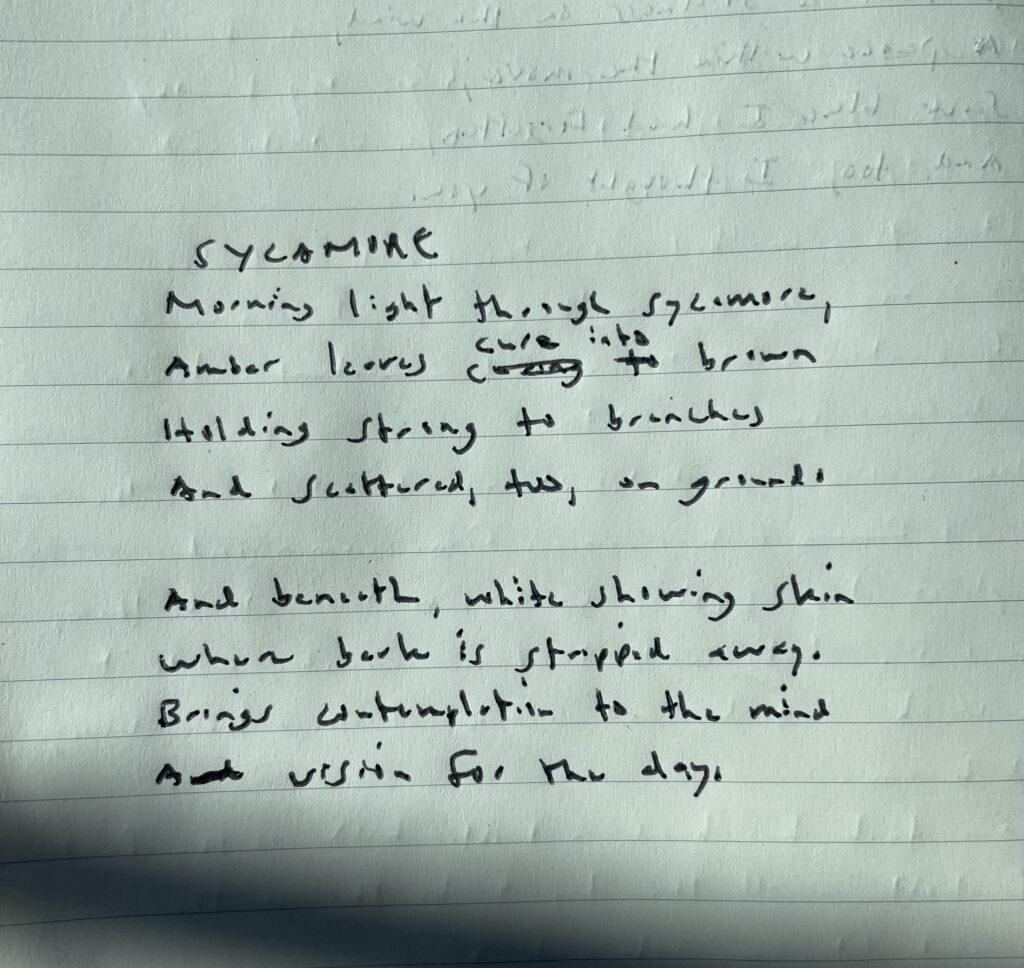 SYCAMORE
Morning light through sycamore,
Amber leaves cure into brown
Holding strong to branches
And scattered, too, on ground.
And beneath, white showing skin
Where bark is stripped away.
Brings contemplation to the mind
And vision for the day.